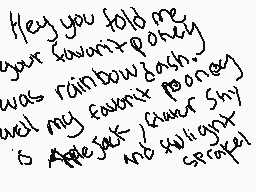 Hey you told me
your favorit poney
was rainbow dash.
well my favorit pooney
is Apple Jack, flutter Shy
and twilight
sprakel